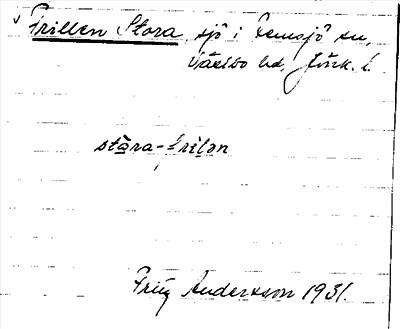 Trillen Stora, sjö i Femsjö sn,
Västbo hd, Jönk. l.
stɑ̄ra-trilən
Fritz Andersson 1931.